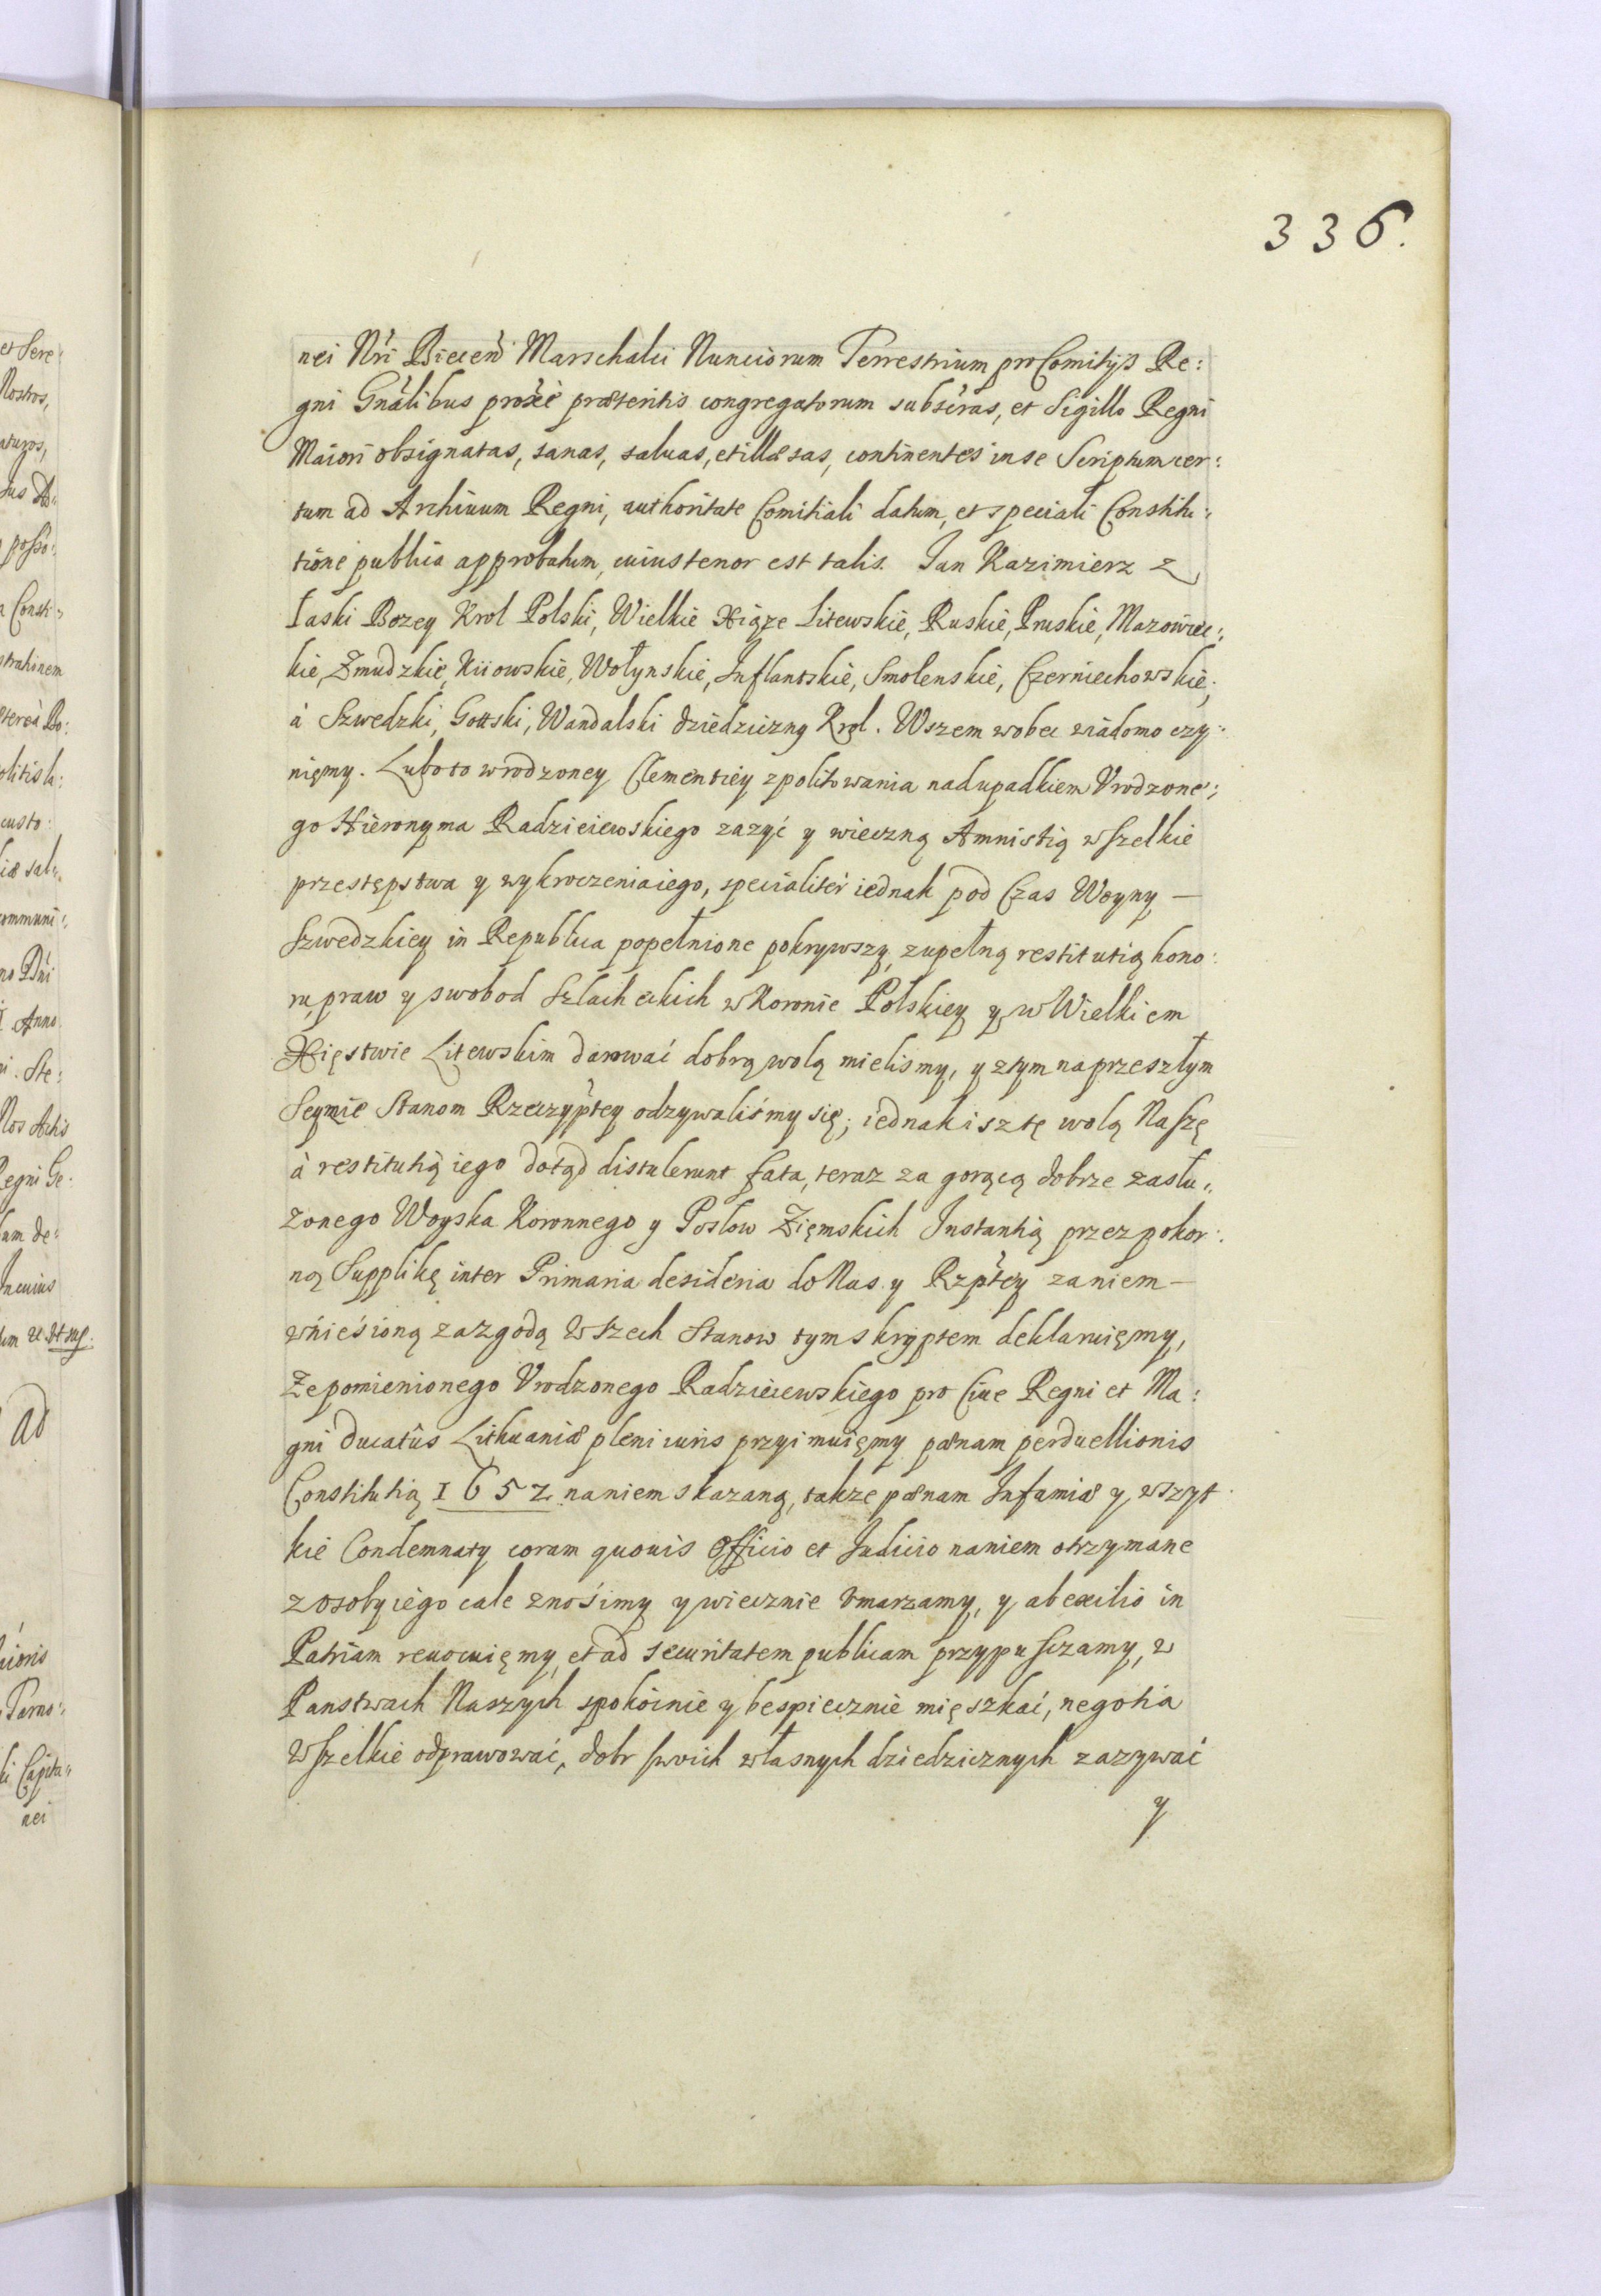 336.
nei Nri Biecen Marschalci Nunciorum Terrestrium pro Comitijs Re:
gni Gnalibus proxè præteritis congregatorum subscras, et Sigillo Regni
Maiori obsignatas, sanas, saluas, et illæsas, continentes in se Scriptum cer:
tum ad Archiuum Regni, authoritate Comitiali datum, et speciali Constitu:
tione publica approbatum, cuius tenor est talis. Jan Kazimierz z
Łaski Bozey Krol Polski, Wielkie Xiąze Litewskie, Ruskie, Pruskie, Mazowiec:
kie, Zmudzkie, Kiiowskie, Wołynskie, Inflantskie, Smolenskie, Czerniechowskie,
à Szwedzki, Gottski, Wandalski dziedziczny Krol. Wszem wobec wiadomo czy:
nięmy. Lubo to wrodzoney Clementiey z politowania nad upadkiem Vrodzone:
go Hieronyma Radzieiewskiego zazyć y wieczną Amnistią wszelkie
przestępstwa y wykroczenia iego, specialiter iednak pod Czas Woyny –
Szwedzkiey in Republica popełnione pokrywszy, zupełną restitutią hono:
ru, praw y swobod Szlacheckich w Koronie Polskiey y w Wielkiem
Xięstwie Litewskim darować dobrą wolą mielismy, y z tym na przeszłym
Seymie Stanom Rzeczyptey odzywaliśmy się; iednak isz tę wolą Naszę
à restitutią iego dotąd distulerunt fata, teraz za gorącą dobrze zasłu:
zonego Woyska Koronnego y Posłow Zięmskich Instantią przez pokor:
ną Supplikę inter Primaria desideria do Nas y Rzptey za niem –
wnieśioną za zgodą wszech Stanow tym skryptem deklaruięmy,
Ze pomienionego Vrodzonego Radzieiewskiego pro Ciue Regni et Ma:
gni Ducatus Lithuaniæ pleni iuris przyimuięmy pænam perduellionis
Constitutią 1652 na niem skazaną, takze pænam Infamiæ y wszyt
kie Condemnaty coram quouis Officio et Iudicio na niem otrzymane
z osoby iego cale znośimy y wiecznie vmarzamy, y ab exilio in
Patriam reuocuięmy, et ad securitatem publicam przypusczamy, w
Panstwach Naszych spokoinie y bespiecznie mięszkać, negotia
wszelkie odprawować, dobr swoich własnych dziedzicznych zazywać
y